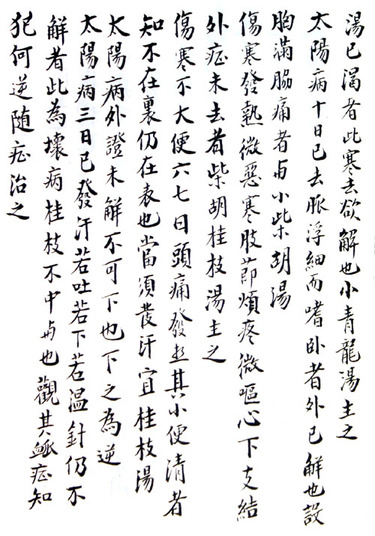 湯已渴者此寒去欲解也小青龍湯主之
太陽病十日已去脉浮細而嗜卧者外已解也設
胸滿脇痛者与小柴胡湯
傷寒發熱微惡寒肢節煩疼微嘔心下支結
外症未去者柴胡桂枝湯主之
傷寒不大便六七日頭痛發热其小便清者
知不在裏仍在表也當須發汗宜桂枝湯
太陽病外證未解不可下也下之為逆
太陽病三日已發汗若吐若下若温針仍不
解者此為壞病桂枝不中与也觀其脈症知
犯何逆随症治之